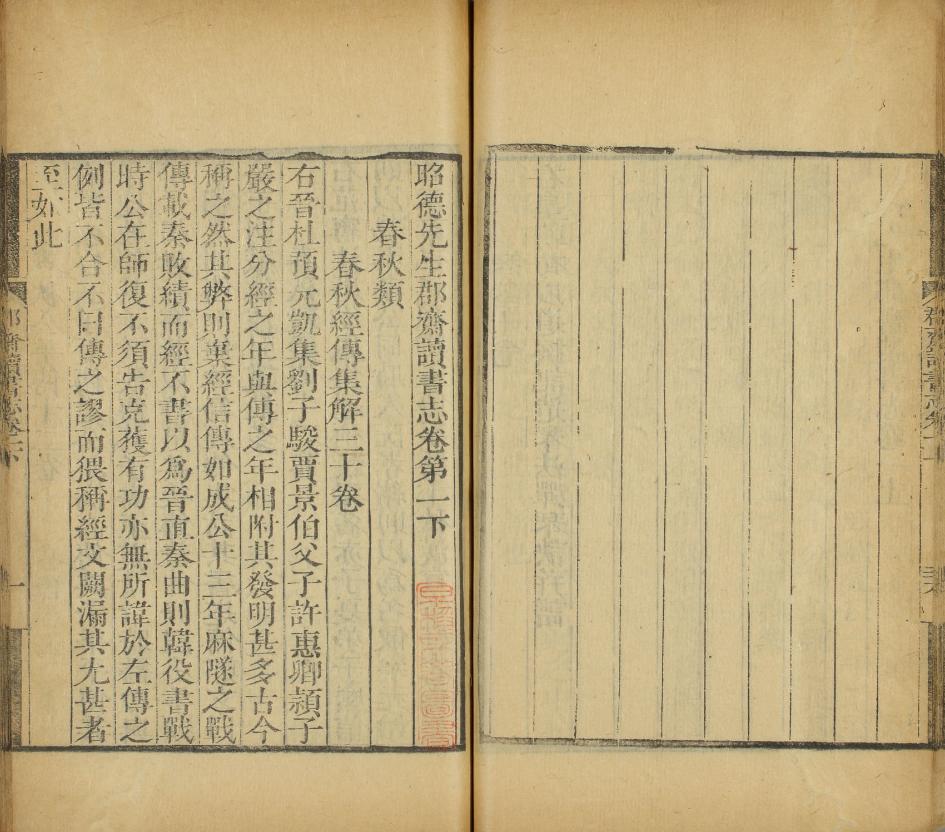 昭德先生郡齋讀書志卷第一下
春秋類
春秋經傳集解三十卷
右晉杜預元凱集劉子駿賈景伯父子許惠卿頴子
嚴之注分經之年與傳之年相附其發明甚多古今
稱之然其弊則棄經信傳如成公十三年麻隧之戰
傳載秦敗績而經不書以爲晉直秦曲則韓役書戰
時公在師復不須告克獲有功亦無所諱於左傳之
例皆不合不曰傳之謬而猥稱經文闕漏其尤甚者
至如此